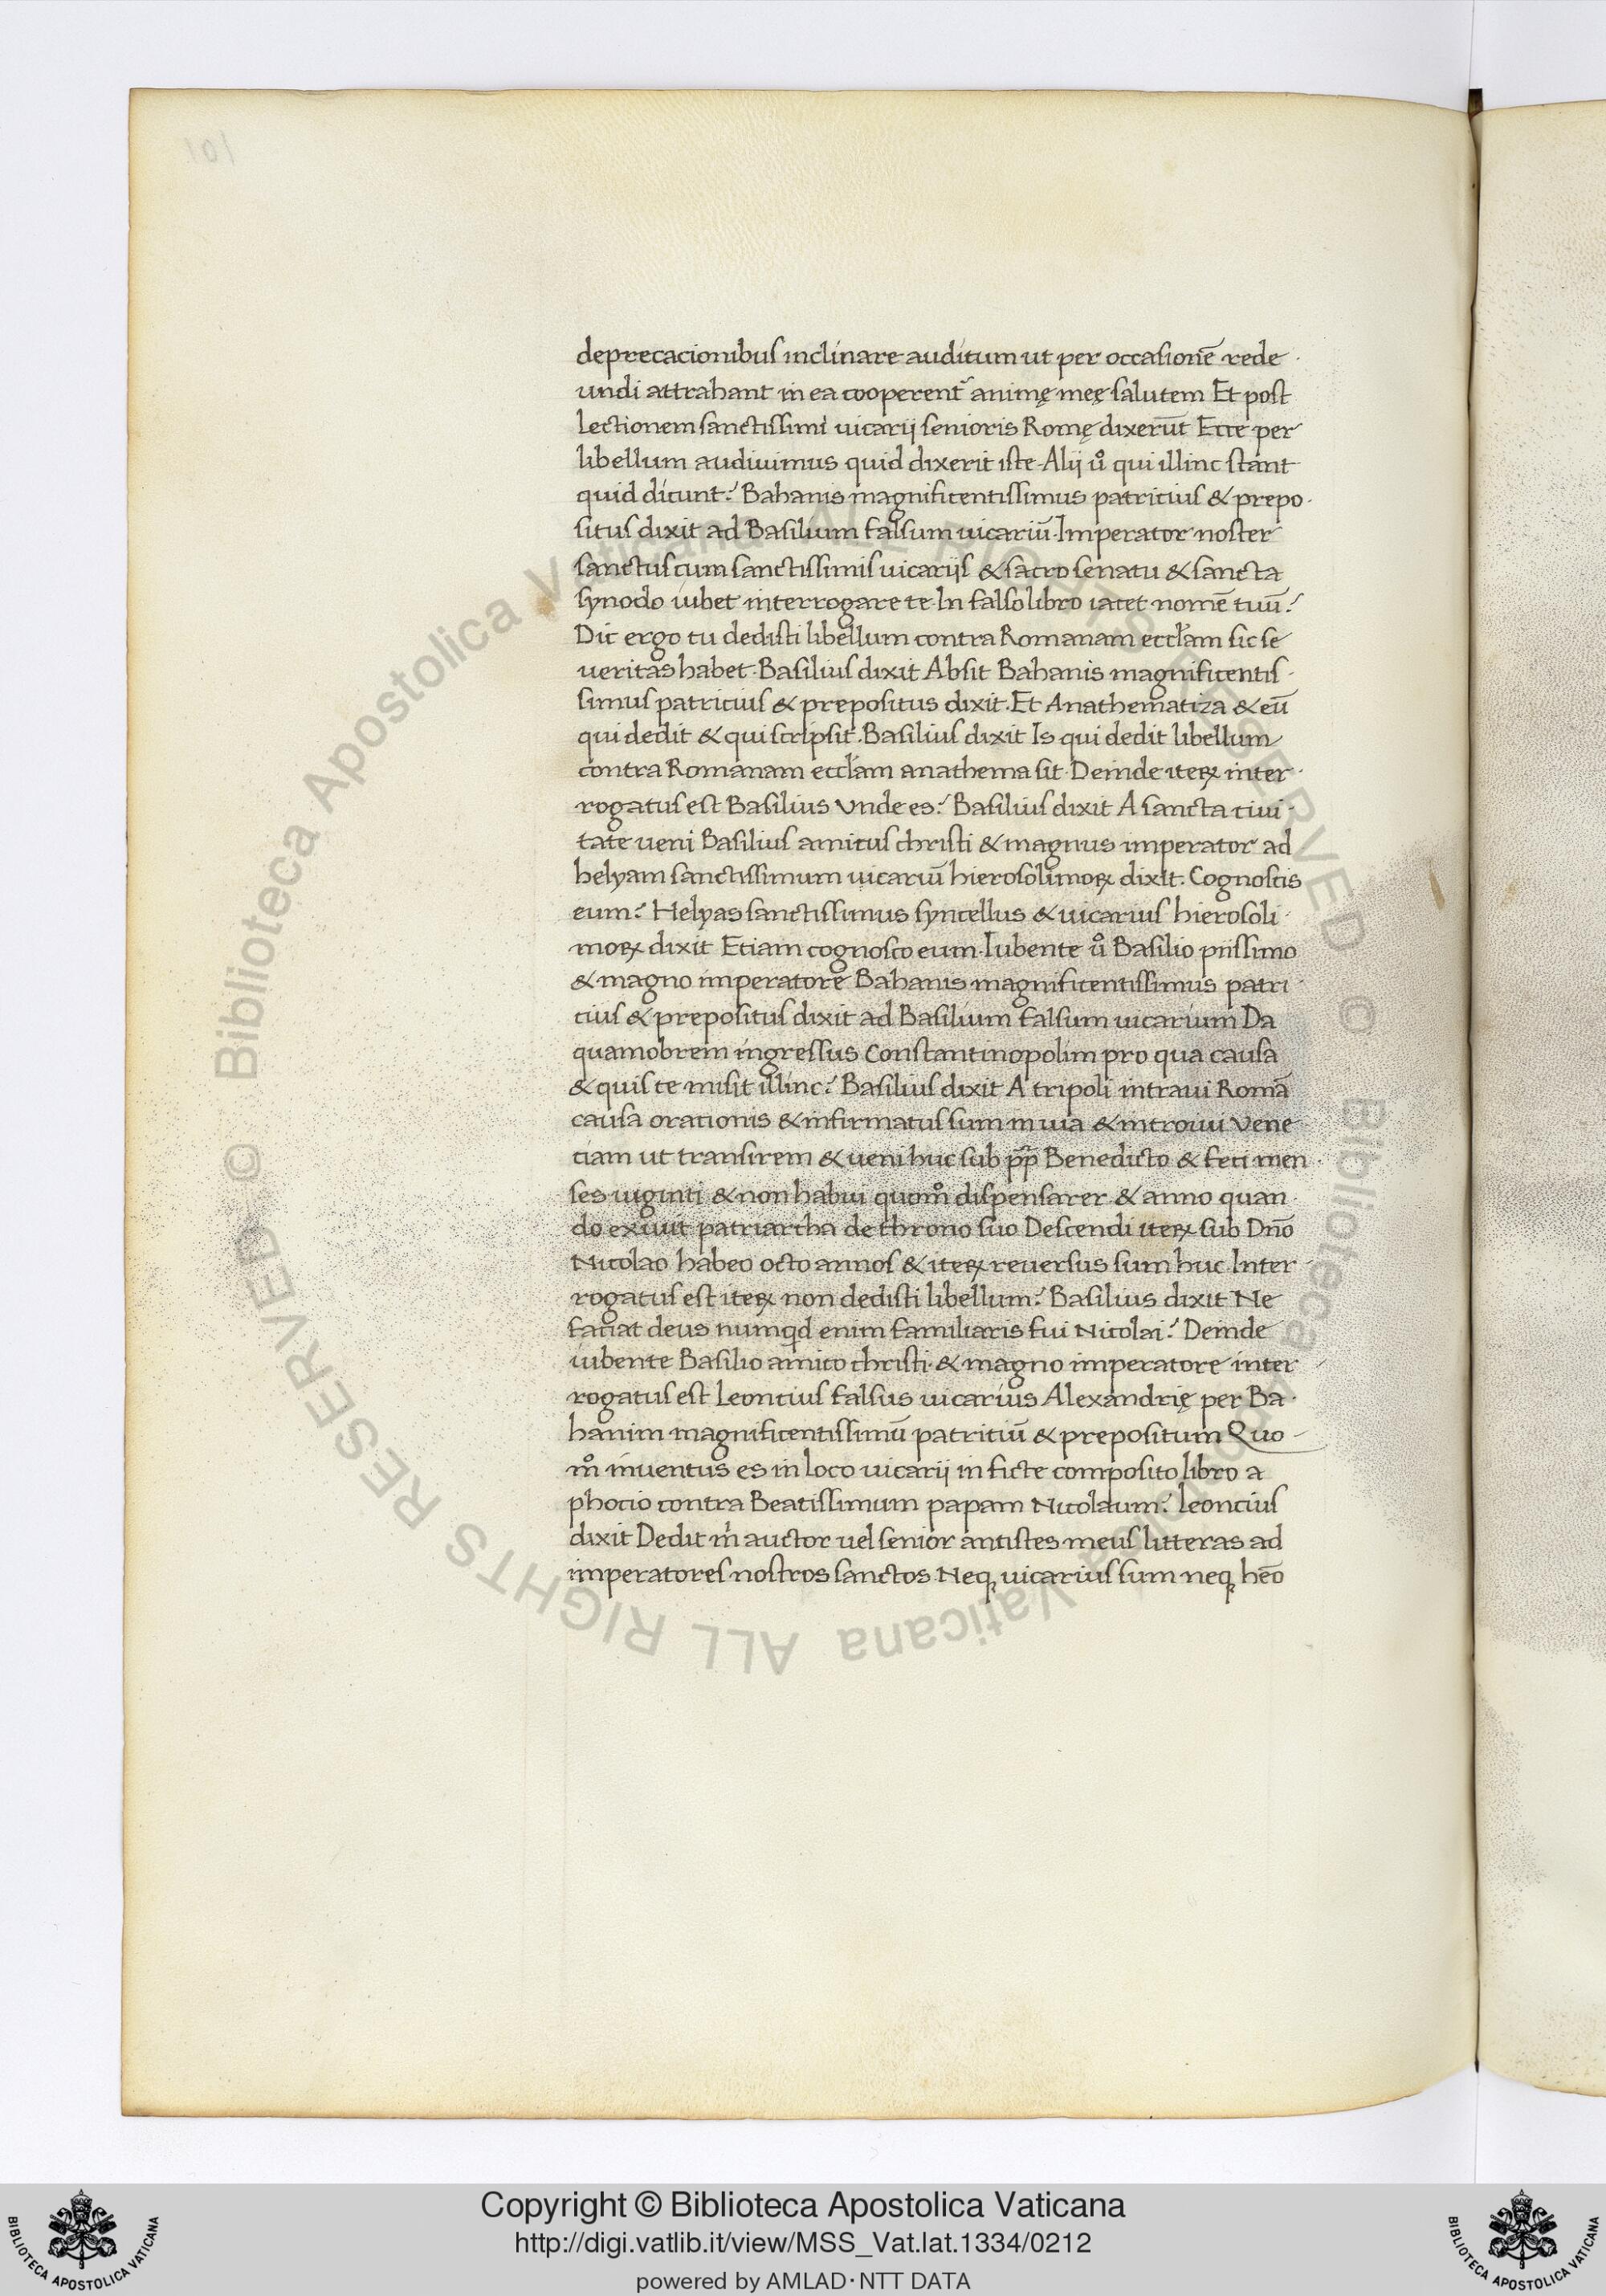 101
deprecacionibus inclinare auditum ut per occasionē rede
undi attrahant in ea cooperent᷑ animę meę salutem Et post
Lectionem sanctissimi uicarij senioris Romę dixerūt Ecce per
libellum audiuimus quid dixerit iste. Alij uͦ qui illinc stant
quid dicunt? Bahanis magnificentissimus patricius & prepo
situs dixit ad Basilium falsum uicariū. Imperator noster
sanctus cum sanctissimis uicarijs & sacro senatu & sancta
synodo iubet interrogare te. In falso libro iacet nomē tuū?
Dic ergo tu dedisti libellum contra Romanam eccl̄am sic se
ueritas habet. Basilius dixit Absit Bahanis magnificentis
simus patricius & prepositus dixit. Et Anathematiza & eū
qui dedit & qui scripsit. Basilius dixit Is qui dedit libellum
contra Romanam eccl̄am anathema sit. Deinde iteꝝ inter
rogatus est Basilius Vnde es? Basilius dixit A sancta ciui
tate ueni Basilius amicus christi & magnus imperator ad
helyam sanctissimum uicariū hierosolimoꝝ dixit. Cognoscis
eum? Helyas sanctissimus syncellus & uicarius hierosoli
moꝝ dixit Etiam cognosco eum. Iubente uͦ Basilio piissimo
& magno imperatore Bahanis magnificentissimus patri
cius & prepositus dixit ad Basilium falsum uicarium Da
quamobrem ingressus Constantinopolim pro qua causa
& quis te misit illinc? Basilius dixit A tripoli intraui Romā
causa orationis & infirmatus sum in uia & introiui Vene
ciam ut transirem & ueni huc sub pp̄ Benedicto & feci men
ses uiginti & non habui quomͦ dispensarer & anno quan
do exiuit patriarcha de throno suo Descendi iteꝝ sub Dn̄o
Nicolao habeo octo annos & iteꝝ reuersus sum huc. Inter
rogatus est iteꝝ non dedisti libellum? Basilius dixit Ne
faciat deus numqd enim familiaris fui Nicolai? Deinde
iubente Basilio amico christi & magno imperatore inter
rogatus est Leoncius falsus uicarius Alexandrię per Ba
hanim magnificentissimū patriciū & prepositum Quo
mͦ inuentus es in loco uicarij in ficte composito libro a
phocio contra Beatissimum papam Nicolaum? Leoncius
dixit Dedit mͥ auctor uel senior antistes meus litteras ad
imperatores nostros sanctos. Neqꝫ uicarius sum neqꝫ hēo
© Biblioteca Apostolica Vaticana ALL RIGHTS RESERVED
© Biblioteca Apostolica Vaticana ALL RIGHTS RESERVED
Copyright © Biblioteca Apostolica Vaticana
http://digi.vatlib.it/view/MSS_Vat.lat.1334/0212
powered by AMLAD·NTT DATA
BIBLIOTECA APOSTOLICA VATICANA
BIBLIOTECA APOSTOLICA VATICANA